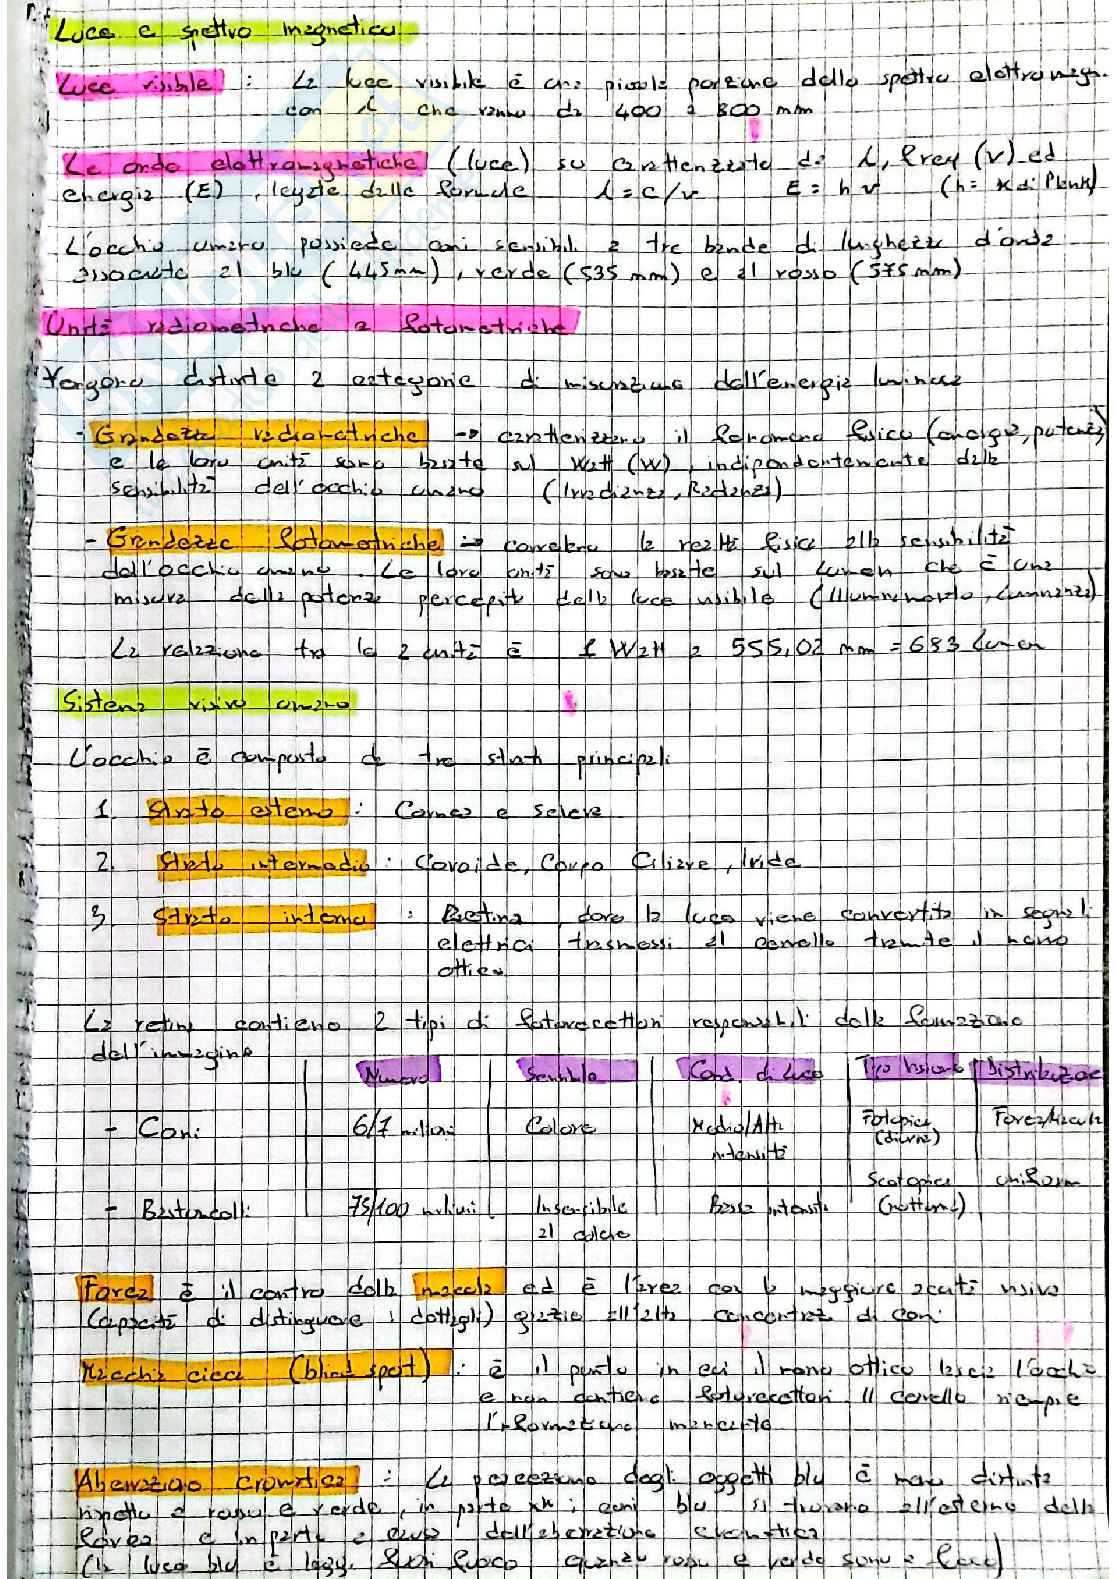 Luce e spettro magnetico
Luce visibile : La luce visibile è una piccola porzione dello spettro elettromagn.
con λ che vanno da 400 a 800 mm
Le onde elettromagnetiche (luce) so caratterizzate da λ, freq (v) ed
energia (E), legate dalle formule λ = c/v E = h v (h = K di Plank)
L'occhio umano possiede coni sensibili a tre bande di lunghezze d'onda
associate al blu (445 mm), verde (535 mm) e al rosso (575 mm)
Unità radiometriche e fotometriche
Vengono distinte 2 categorie di misurazione dell'energia luminosa
- Grandezze radiometriche → caratterizzano il fenomeno fisico (energia, potenza)
e le loro unità sono basate sul Watt (W), indipendentemente dalla
sensibilità dell'occhio umano (Irradianza, Radianza)
- Grandezze fotometriche → correlano la realtà fisica alla sensibilità
dell'occhio umano. Le loro unità sono basate sul Lumen che è una
misura della potenza percepita della luce visibile (Illuminamento, Luminanza)
La relazione tra le 2 unità è 1 Watt a 555,02 mm = 683 Lumen
Sistema visivo umano
L'occhio è composto da tre strati principali
1. Strato esterno : Cornea e sclera
2. Strato intermedio : Coroide, Corpo Ciliare, Iride
3. Strato interno : Retina, dove la luce viene convertita in segnali
elettrici trasmessi al cervello tramite il nervo
ottico
La retina contiene 2 tipi di fotorecettori responsabili della formazione
dell'immagine
Numero Sensibile Cond. di luce Tipo visione Distribuzione
- Coni 6/7 milioni Colore Medio/Alta Fotopica Fovea/Macula
(diurna)
intensità
Scotopica uniforme
- Bastoncelli 75/100 milioni Insensibile Bassa intensità (notturna)
al colore
Fovea è il centro della macula ed è l'area con la maggiore acuità visiva
(capacità di distinguere i dettagli) grazie all'alta concentraz di coni
Macchia cieca (blind spot) : è il punto in cui il nervo ottico lascia l'occhio
e non contiene fotorecettori. Il cervello riempie
l'informazione mancante
Aberrazione cromatica : La percezione degli oggetti blu è meno distinta
rispetto a rosso e verde, in parte xke i coni blu si trovano all'esterno della
fovea e in parte a causa dell'aberrazione cromatica
(la luce blu è legg. fuori fuoco quando rosso e verde sono a fuoco)